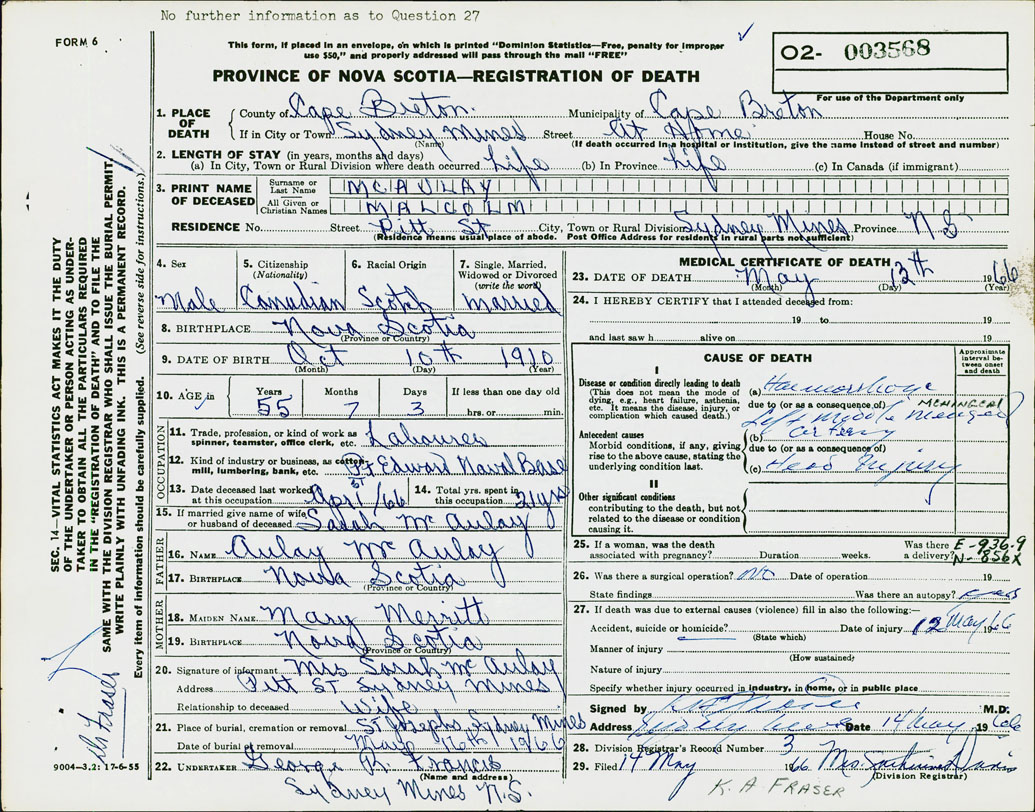 No further information as to Question 27
FORM 6
This form, if placed in an envelope, on which is printed "Dominion Statistics—Free, penalty for improper
use $50," and properly addressed will pass through the mail "FREE"
O2- 003568
For use of the Department only
PROVINCE OF NOVA SCOTIA—REGISTRATION OF DEATH
1. PLACE OF DEATH County of Cape Breton Municipality of Cape Breton
If in City or Town Sydney Mines Street At Home House No.
(Name) (If death occurred in a hospital or institution, give the name instead of street and number)
2. LENGTH OF STAY (in years, months and days)
(a) In City, Town or Rural Division where death occurred Life (b) In Province Life (c) In Canada (if immigrant)
3. PRINT NAME OF DECEASED Surname or Last Name MCAULAY
All Given or Christian Names MALCOLM
RESIDENCE No. Street Pitt St City, Town or Rural Division Sydney Mines Province N S
(Residence means usual place of abode. Post Office Address for residents in rural parts not sufficient)
4. Sex Male
5. Citizenship (Nationality) Canadian
6. Racial Origin Scotch
7. Single, Married, Widowed or Divorced (write the word) Married
8. BIRTHPLACE Nova Scotia
(Province or Country)
9. DATE OF BIRTH Oct 10th 1910
(Month) (Day) (Year)
10. AGE in Years 55 Months 7 Days 3 If less than one day old hrs. or min.
OCCUPATION
11. Trade, profession, or kind of work as spinner, teamster, office clerk, etc. Labourer
12. Kind of industry or business, as cotton mill, lumbering, bank, etc. Pt Edward Naval Base
13. Date deceased last worked at this occupation Apr 1/66
14. Total yrs. spent in this occupation 21 yrs
15. If married give name of wife or husband of deceased Sarah McAulay
FATHER
16. NAME Aulay McAulay
17. BIRTHPLACE Nova Scotia
(Province or Country)
MOTHER
18. MAIDEN NAME Mary Merritt
19. BIRTHPLACE Nova Scotia
(Province or Country)
20. Signature of informant Mrs Sarah McAulay
Address Pitt ST Sydney Mines
Relationship to deceased Wife
21. Place of burial, cremation or removal ST Josephs, Sydney Mines
Date of burial or removal May 16th 1966
22. UNDERTAKER George R. Francis
(Name and address)
Sydney Mines N.S.
MEDICAL CERTIFICATE OF DEATH
23. DATE OF DEATH May 13th 1966
(Month) (Day) (Year)
24. I HEREBY CERTIFY that I attended deceased from:
19 to 19
and last saw h alive on 19
CAUSE OF DEATH
Approximate interval between onset and death
I
Disease or condition directly leading to death
(This does not mean the mode of dying, e.g., heart failure, asthenia, etc. It means the disease, injury, or complication which caused death.)
(a) Haemorrhage
due to (or as a consequence of) MENINGEAL
Left Middle Meningeal
(b) artery
Antecedent causes
Morbid conditions, if any, giving rise to the above cause, stating the underlying condition last.
due to (or as a consequence of)
(c) Head Injury
II
Other significant conditions
contributing to the death, but not related to the disease or condition causing it.
25. If a woman, was the death associated with pregnancy? Duration weeks. Was there a delivery?
E-936.9
N-856X
26. Was there a surgical operation? No Date of operation 19
State findings Was there an autopsy? yes
27. If death was due to external causes (violence) fill in also the following:—
Accident, suicide or homicide? Date of injury 12 May 1966
(State which)
Manner of injury
(How sustained)
Nature of injury
Specify whether injury occurred in industry, in home, or in public place
Signed by M.D.
Address Date 14 May 1966
28. Division Registrar's Record Number 3
29. Filed 14 May 1966 Mrs.
(Division Registrar)
K. A FRASER
SEC. 14—VITAL STATISTICS ACT MAKES IT THE DUTY
OF THE UNDERTAKER OR PERSON ACTING AS UNDER-
TAKER TO OBTAIN ALL THE PARTICULARS REQUIRED
IN THE "REGISTRATION OF DEATH" AND TO FILE THE
SAME WITH THE DIVISION REGISTRAR WHO SHALL ISSUE THE BURIAL PERMIT.
WRITE PLAINLY WITH UNFADING INK. THIS IS A PERMANENT RECORD.
Every item of information should be carefully supplied. (See reverse side for instructions.)
Fraser
9004-3.2: 17-6-55